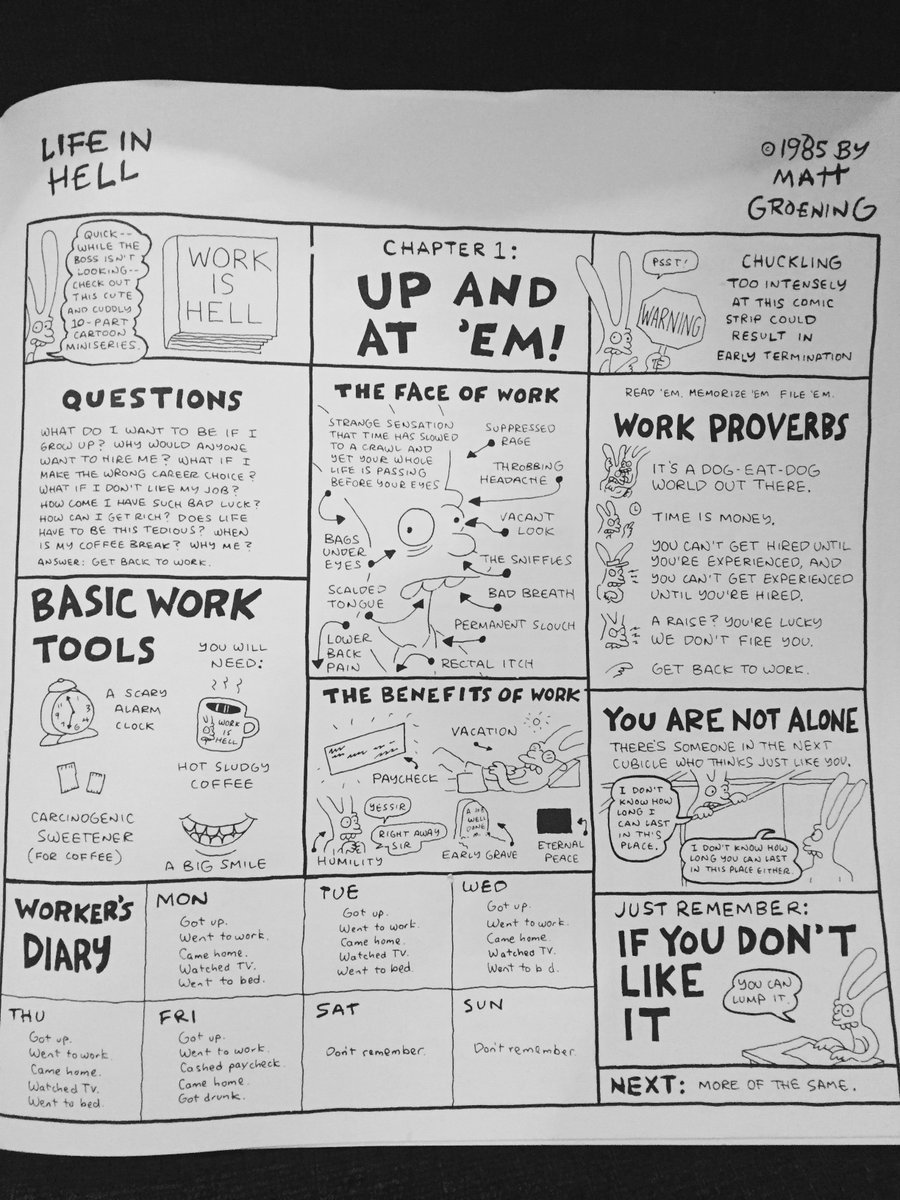 LIFE IN
HELL
©1985 BY
MATT
GROENING
QUICK--
WHILE THE
BOSS ISN'T
LOOKING--
CHECK OUT
THIS CUTE
AND CUDDLY
10-PART
CARTOON
MINISERIES.
WORK
IS
HELL
CHAPTER 1:
UP AND
AT 'EM!
PSST!
WARNING
CHUCKLING
TOO INTENSELY
AT THIS COMIC
STRIP COULD
RESULT IN
EARLY TERMINATION
QUESTIONS
WHAT DO I WANT TO BE IF I
GROW UP? WHY WOULD ANYONE
WANT TO HIRE ME? WHAT IF I
MAKE THE WRONG CAREER CHOICE?
WHAT IF I DON'T LIKE MY JOB?
HOW COME I HAVE SUCH BAD LUCK?
HOW CAN I GET RICH? DOES LIFE
HAVE TO BE THIS TEDIOUS? WHEN
IS MY COFFEE BREAK? WHY ME?
ANSWER: GET BACK TO WORK.
BASIC WORK
TOOLS
YOU WILL
NEED:
A SCARY
ALARM
CLOCK
WORK
IS
HELL
HOT SLUDGY
COFFEE
CARCINOGENIC
SWEETENER
(FOR COFFEE)
A BIG SMILE
THE FACE OF WORK
STRANGE SENSATION
THAT TIME HAS SLOWED
TO A CRAWL AND
YET YOUR WHOLE
LIFE IS PASSING
BEFORE YOUR EYES
SUPPRESSED
RAGE
THROBBING
HEADACHE
VACANT
LOOK
BAGS
UNDER
EYES
THE SNIFFLES
SCALDED
TONGUE
BAD BREATH
PERMANENT SLOUCH
LOWER
BACK
PAIN
RECTAL ITCH
THE BENEFITS OF WORK
PAYCHECK
VACATION
YESSIR
RIGHT AWAY
SIR
HUMILITY
WELL
DONE
EARLY GRAVE
ETERNAL
PEACE
READ 'EM. MEMORIZE 'EM FILE 'EM.
WORK PROVERBS
IT'S A DOG-EAT-DOG
WORLD OUT THERE.
TIME IS MONEY.
YOU CAN'T GET HIRED UNTIL
YOU'RE EXPERIENCED, AND
YOU CAN'T GET EXPERIENCED
UNTIL YOU'RE HIRED.
A RAISE? YOU'RE LUCKY
WE DON'T FIRE YOU.
GET BACK TO WORK.
YOU ARE NOT ALONE
THERE'S SOMEONE IN THE NEXT
CUBICLE WHO THINKS JUST LIKE YOU.
I DON'T
KNOW HOW
LONG I
CAN LAST
IN THIS
PLACE.
I DON'T KNOW HOW
LONG YOU CAN LAST
IN THIS PLACE EITHER.
WORKER'S
DIARY
MON
Got up.
Went to work.
Came home.
Watched TV.
Went to bed.
TUE
Got up.
Went to work.
Came home.
Watched TV.
Went to bed.
WED
Got up.
Went to work.
Came home.
Watched TV.
Went to b d.
THU
Got up.
Went to work
Came home.
Watched TV.
Went to bed.
FRI
Got up.
Went to work.
Cashed paycheck.
Came home.
Got drunk.
SAT
Don't remember.
SUN
Don't remember.
JUST REMEMBER:
IF YOU DON'T
LIKE
IT
YOU CAN
LUMP IT.
NEXT: MORE OF THE SAME.